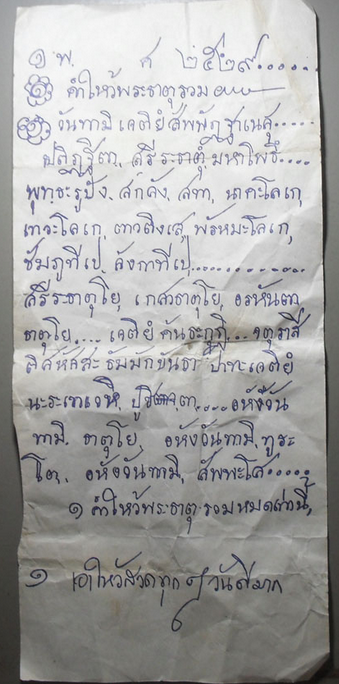 ๑ พ. ศ ๒๕๒๙.....
คำไหว้พระธาตุรวม
วันทามิ เจติยํ สัพพัฏฐาเนสุ....
ปติฏฐิตา, สรีระธาตุํ มหาโพธิํ....
พุทธะรูปัง. สกลัง, สทา, นาคะโลเก,
เทวะโลเก, ตาวติงเส, พรัหมะโลเก,
ชัมภูทีเป, ลังกาทีเป...............
สรีระธาตุโย, เกสาธาตุโย, อรหันตา
ธาตุโย.... เจติยํ คันธะกุฏิ... จตุราสี
ติสหัสสะ ธัมมักขันธา ปาทะเจติยํ
นะระเทเวหิ, ปูชิตา..... อหังวัน
ทามิ, ธาตุโย, อหังวันทามิ, ทูระ
โต, อหังวันทามิ, สัพพะโส.....
๑ คำไหว้พระธาตุรวมหมดเท่านี้,
๑ เอาไหว้สวดทุก ๆ วันดีมาก